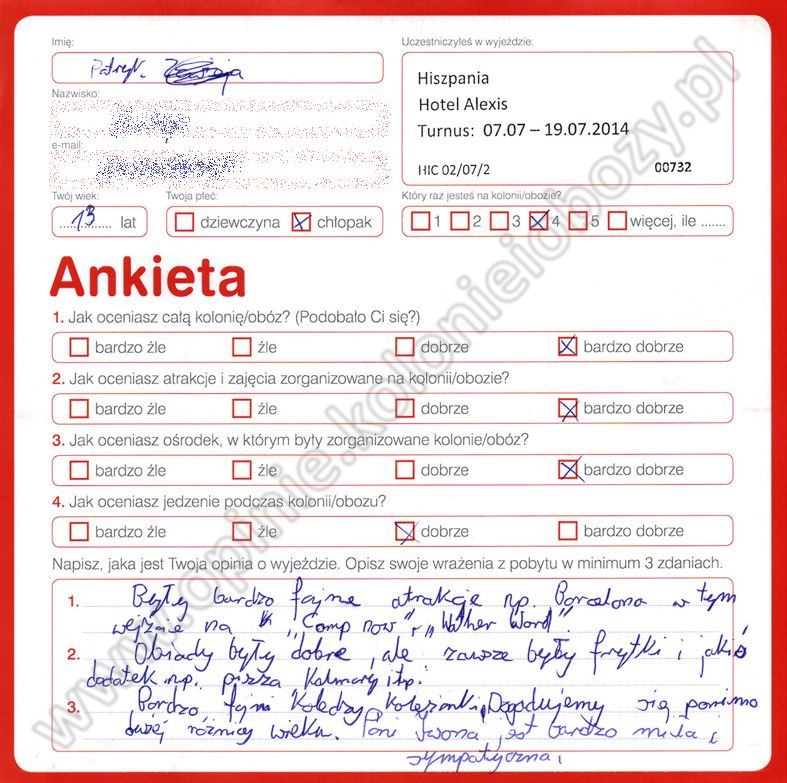 Imię:
Patryk.
Nazwisko:
e-mail:
Twój wiek:
13 lat
Twoja płeć:
dziewczyna chłopak
Uczestniczyłeś w wyjeździe:
Hiszpania
Hotel Alexis
Turnus: 07.07 – 19.07.2014
HIC 02/07/2 00732
Który raz jesteś na kolonii/obozie?
1 2 3 4 5 więcej, ile .......
Ankieta
1. Jak oceniasz całą kolonię/obóz? (Podobało Ci się?)
bardzo źle źle dobrze bardzo dobrze
2. Jak oceniasz atrakcje i zajęcia zorganizowane na kolonii/obozie?
bardzo źle źle dobrze bardzo dobrze
3. Jak oceniasz ośrodek, w którym były zorganizowane kolonie/obóz?
bardzo źle źle dobrze bardzo dobrze
4. Jak oceniasz jedzenie podczas kolonii/obozu?
bardzo źle źle dobrze bardzo dobrze
Napisz, jaka jest Twoja opinia o wyjeździe. Opisz swoje wrażenia z pobytu w minimum 3 zdaniach.
1. Były bardzo fajne atrakcje np. Barcelona w tym
wejście na "Comp now"
2. Obiady były dobre, ale zawsze były frytki i jakiś
dodatek np. pizza kalmary itp.
3. Bardzo fajni koledzy koleżanki. Dogadujemy się pomimo
dużej różnicy wieku. Pani Iwona jest bardzo miła i
sympatyczna.
www.opinie.kolonieiobozy.pl